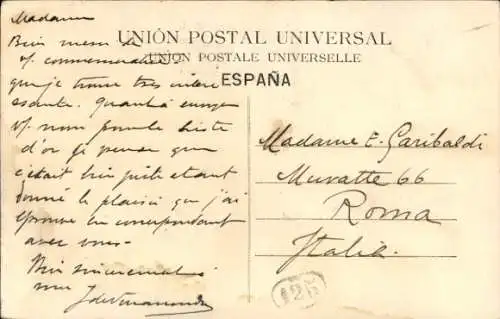 Madame
UNIÓN POSTAL UNIVERSAL
UNION POSTALE UNIVERSELLE
ESPAÑA
Bien merci de
v/ commemoration
que je trouve tres intere
ssante. Quant à
v/ nom
d'or je pense que
c'était bien juste etant
donné le plaisir que j'ai
éprouvé en correspondant
avec vous
Bien sincerement
Madame E. Garibaldi
Muratte 66
Roma
Italia
125